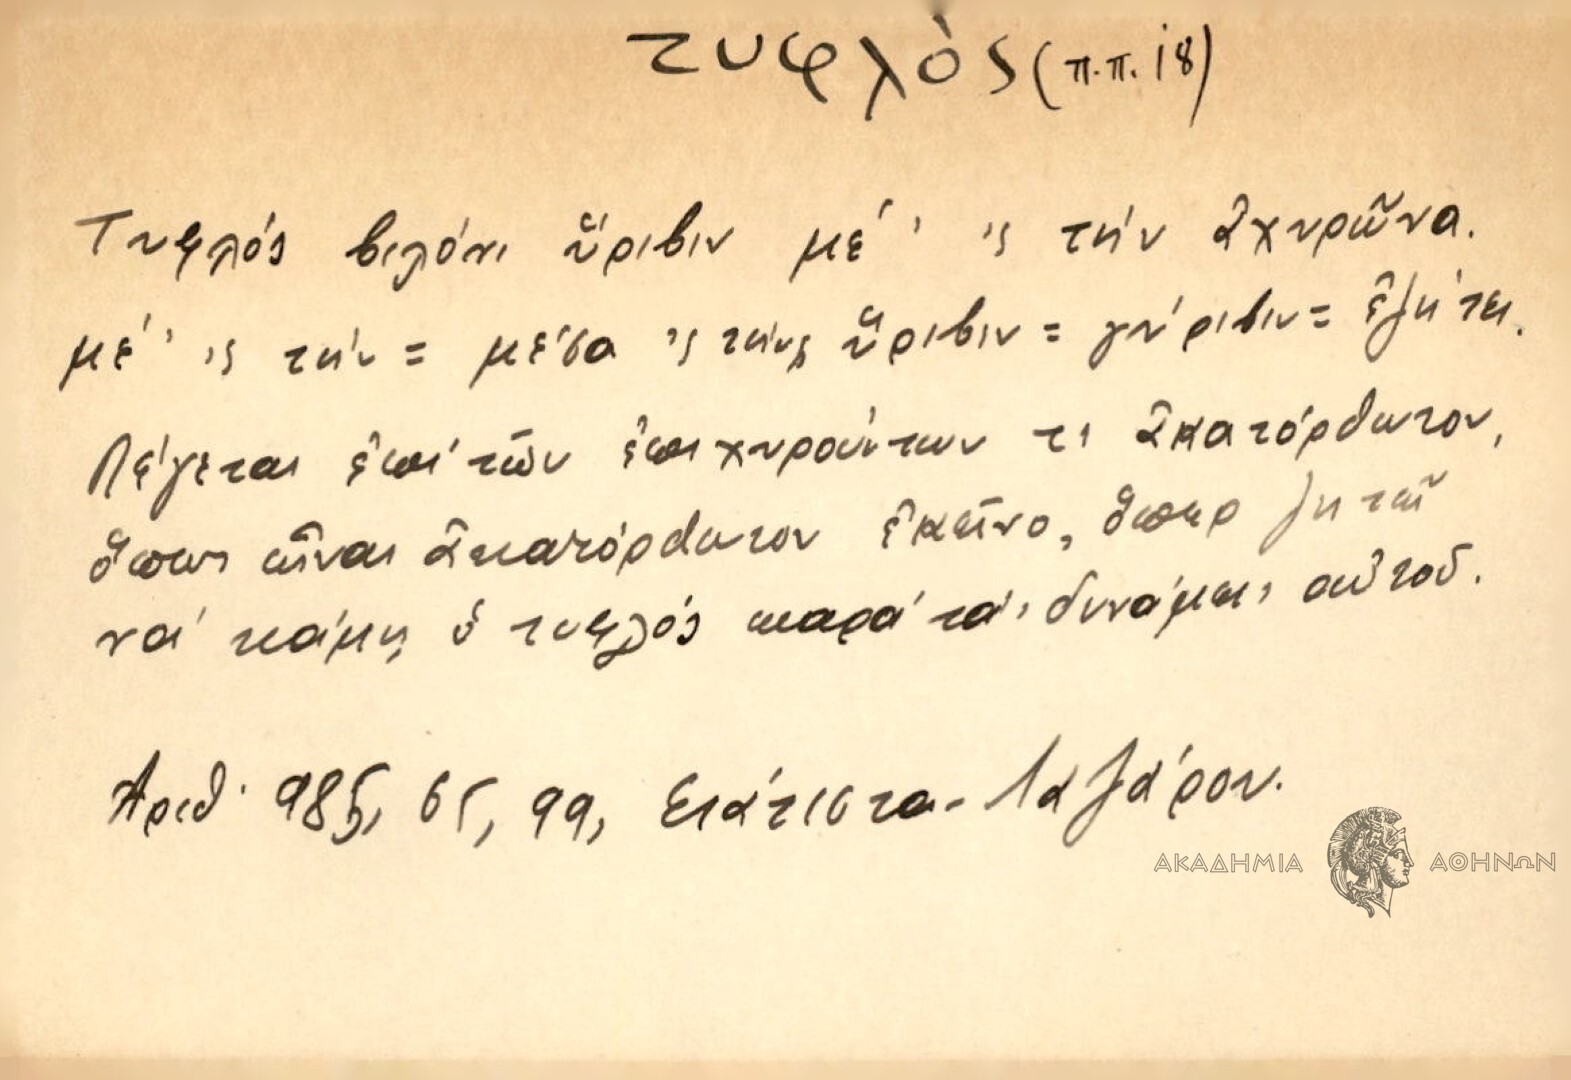 τυφλὸς (π.π. 18)
Τυφλός βιλόνι ὕριβιν μέ' 'ς τήν ἀχυρῶνα.
μέ' 'ς τήν = μέσα 'ς τήν, ὕριβιν = γύριβιν = ἐζήτει.
Λέγεται ἐπί τῶν ἐπιχειρούντων τι ἀκατόρθωτον,
ὅπως εἶναι ἀκατόρθωτον ἐκεῖνο, ὅπερ ζητεῖ
νά κάμῃ ὁ τυφλός παρά τάς δυνάμεις αὐτοῦ.
Ἀριθ. 985, 65, 99, Σιάτιστα - Λαζάρου.
ΑΚΑΔΗΜΙΑ ΑΘΗΝΩΝ